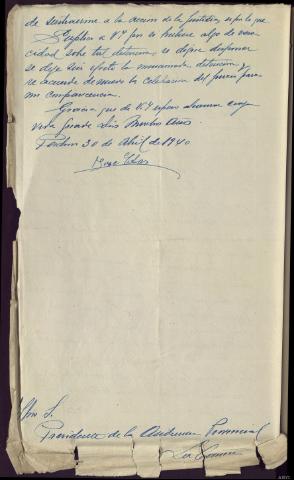 de sustraerme a la accion de la Justicia, es por lo que
Suplico a V.I. por si hubiere algo de vera
cidad sobre tal detencion, se digne disponer
se deje sin efecto la mencionada detencion y
se acuerde de nuevo la celebracion del juicio para
mi comparecencia.
Gracia que de V.I. espero alcanzar cuya
vida guarde Dios Muchos Años.
30 de Abril de 1940
Jose
Ilmo S.
Presidente de la Audiencia Provincial